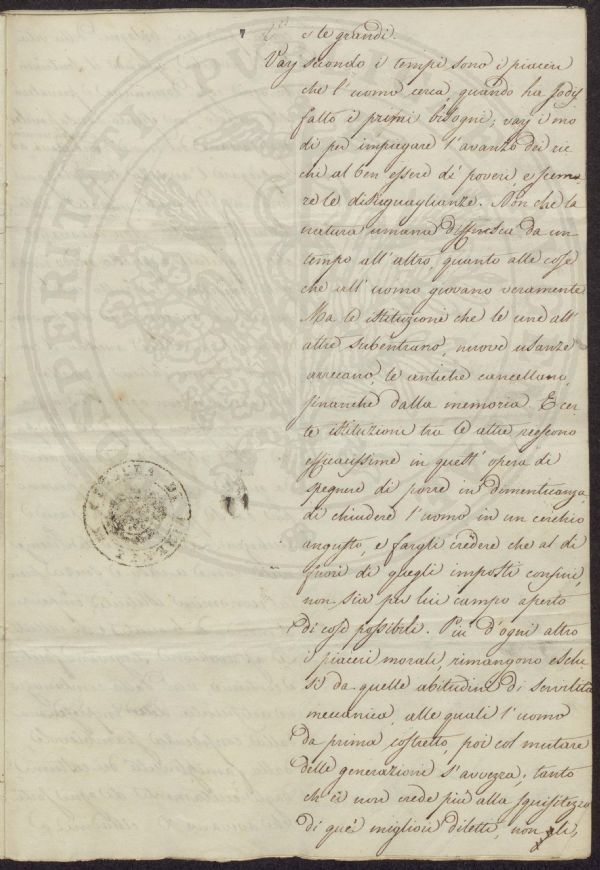 e le grandi.
Varj secondo i tempi sono i piaceri
che l'uomo cerca, quando ha sodis
fatto i primi bisogni; varj i mo
di per impiegare l'avanzo dei ric
chi al ben essere de' poveri, e scema
re le disuguaglianze. Non che la
natura umana differisca da un
tempo all'altro, quanto alle cose
che all'uomo giovano veramente
Ma le istituzioni che le une all'
altre subentrano, nuove usanze
arrecano, le antiche cancellano,
finanche dalla memoria. E cer
te istituzioni tra le altre riescono
efficacissime in quell'opera di
spegnere di porre in dimenticanza,
di chiudere l'uomo in un cerchio
angusto, e fargli credere che al di
fuori di quegli imposti confini,
non sia per lui campo aperto
di cose possibili. Più d'ogni altro
i piaceri morali, rimangono esclu
si da quelle abitudini di servilità
meccanica, alle quali l'uomo
da prima costretto, poi col mutare
delle generazioni s'avvezza; tanto
ch'ei non crede più alla squisitezza
di quei migliori diletti, non gli,